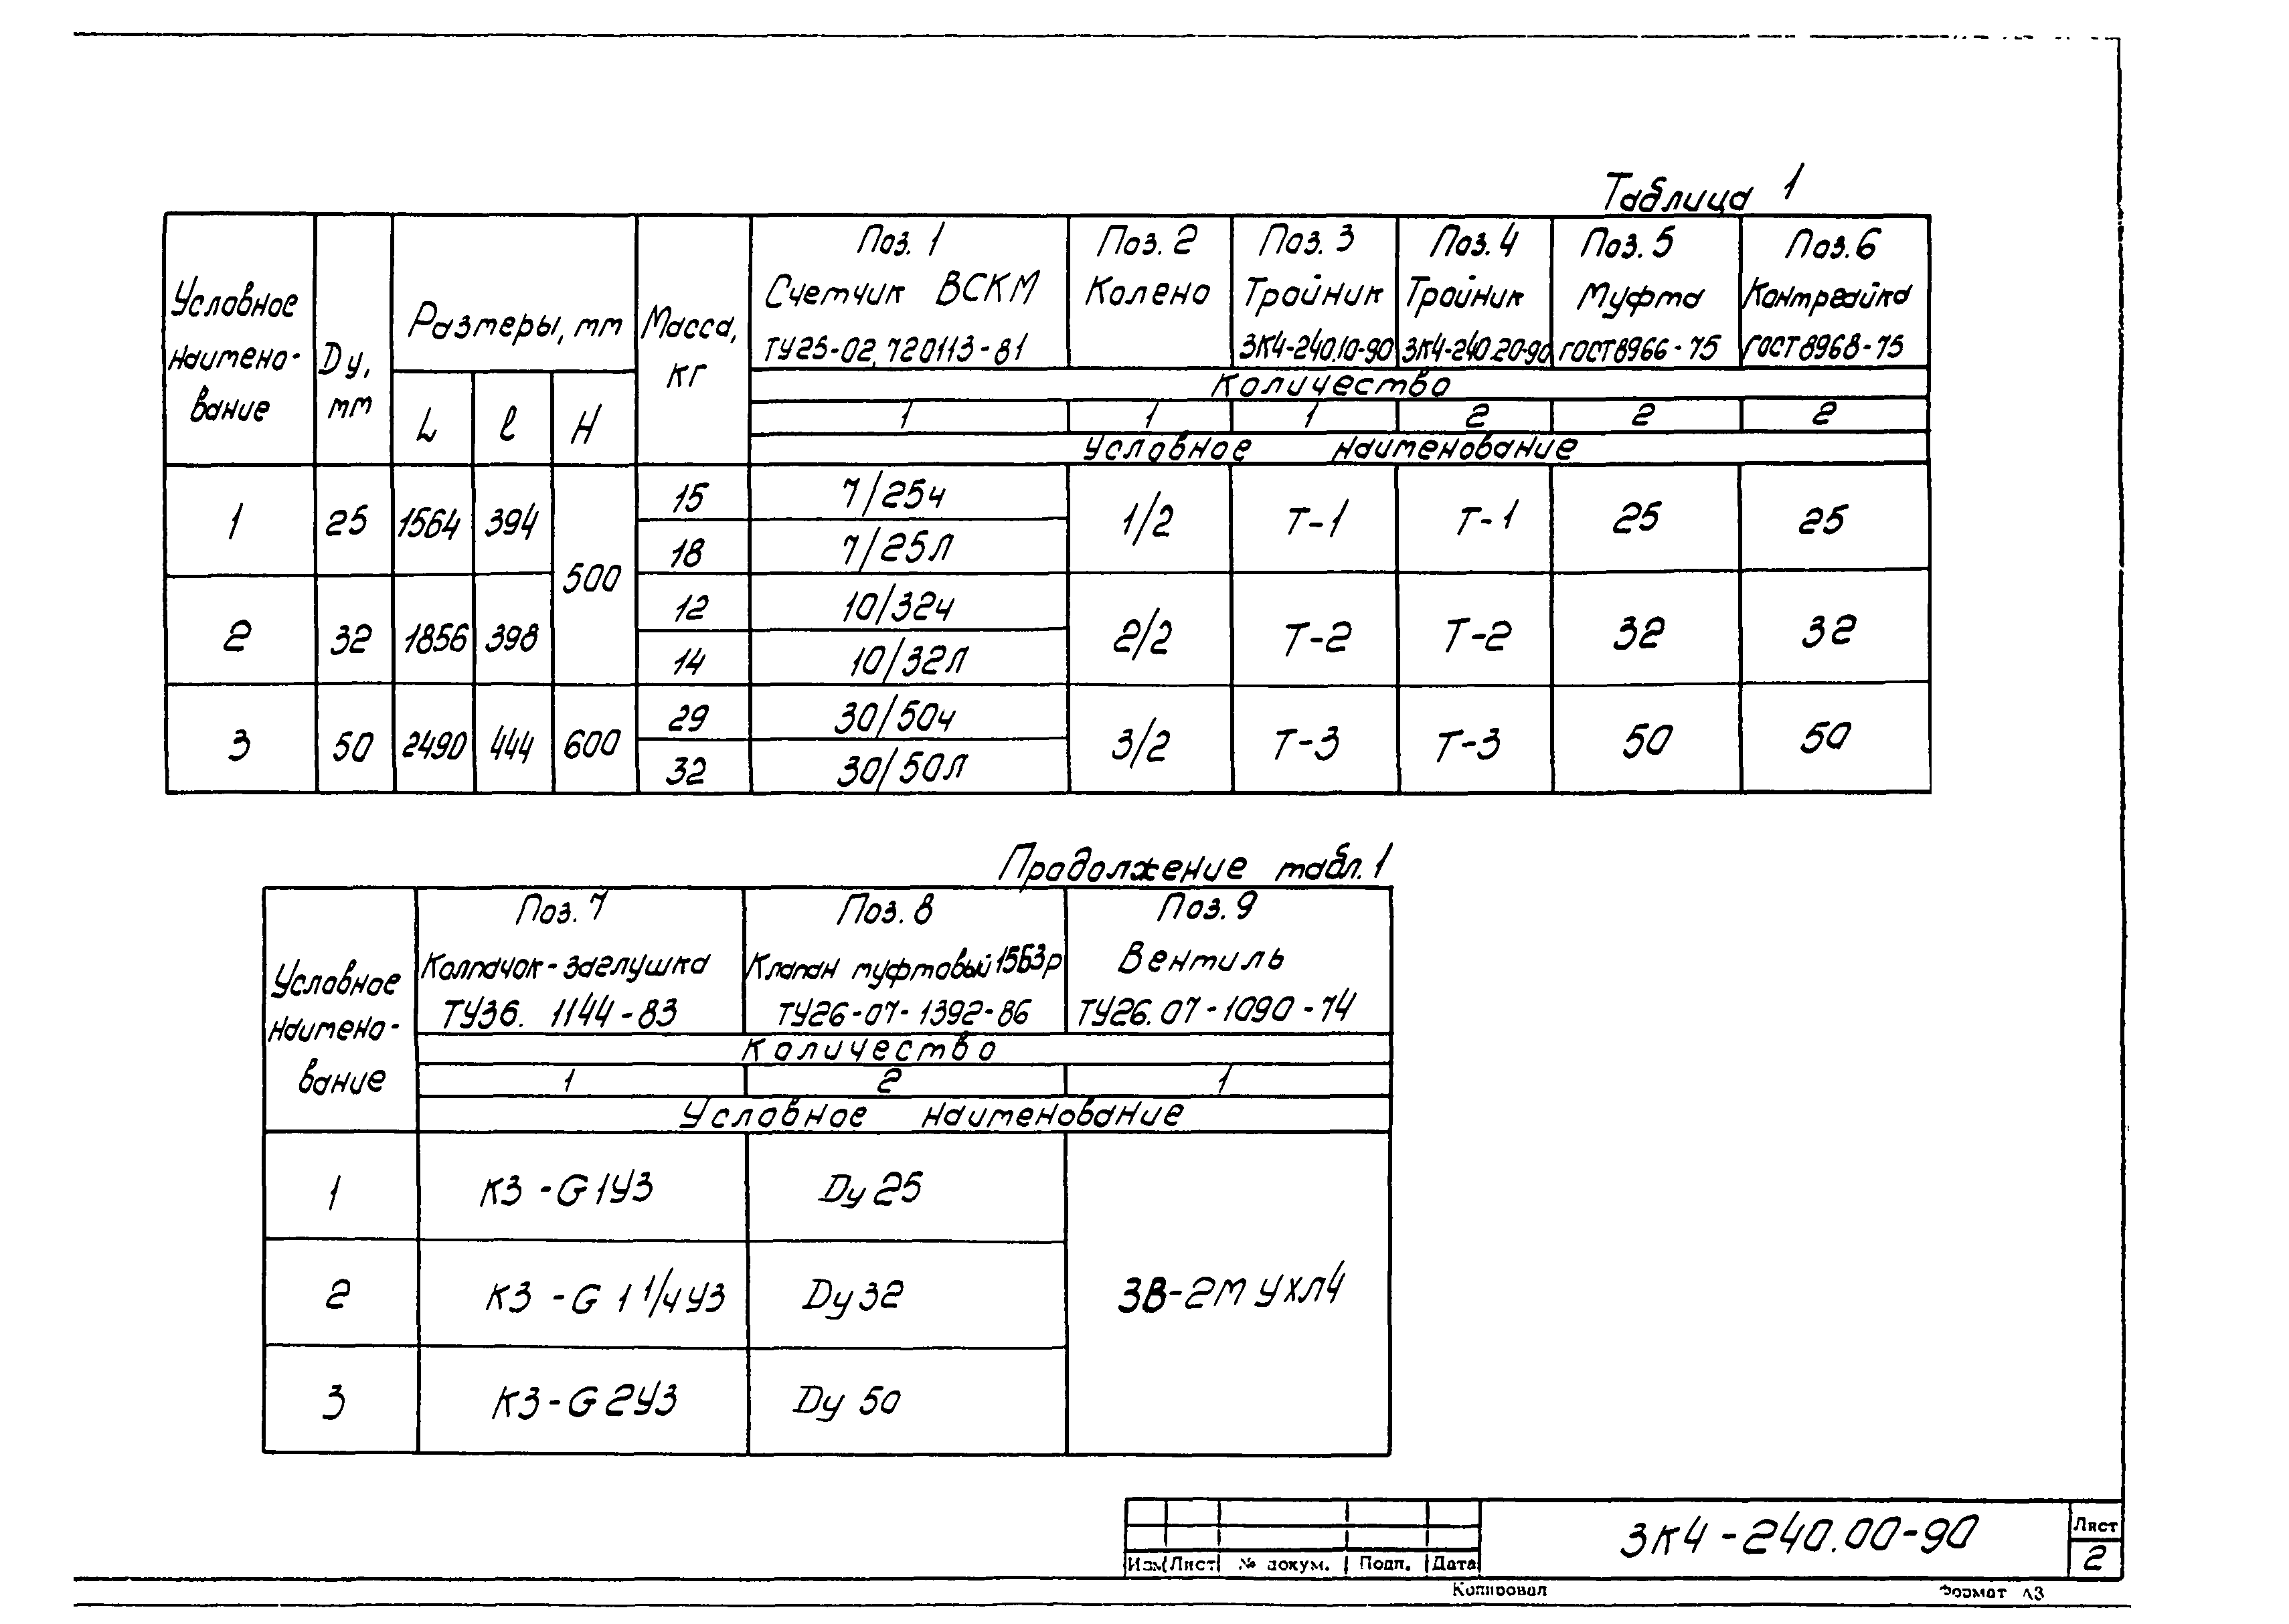 Таблица 1
Условное наимено-вание
Dу, мм
Размеры, мм
L
l
H
Масса, кг
Поз. 1 Счетчик ВСКМ ТУ25-02.720113-81
Поз. 2 Колено
Поз. 3 Тройник ЗК4-240.10-90
Поз. 4 Тройник ЗК4-240.20-90
Поз. 5 Муфта ГОСТ 8966-75
Поз. 6 Контргайка ГОСТ 8968-75
Количество
1 1 1 2 2 2
Условное наименование
1 25 1564 394 500 15 7/25ч 1/2 Т-1 Т-1 25 25
18 7/25Л
2 32 1856 398 12 10/32ч 2/2 Т-2 Т-2 32 32
14 10/32Л
3 50 2490 444 600 29 30/50ч 3/2 Т-3 Т-3 50 50
32 30/50Л
Продолжение табл. 1
Условное наимено-вание
Поз. 7 Колпачок-заглушка ТУ36. 1144-83
Поз. 8 Клапан муфтовый 15Б3р ТУ26-07-1392-86
Поз. 9 Вентиль ТУ26.07-1090-74
Количество
1 2 1
Условное наименование
1 КЗ-G1У3 Dу 25
2 КЗ-G 1 1/4 У3 Dу 32 ЗВ-2М УХЛ4
3 КЗ-G2У3 Dу 50
ЗК4-240.00-90
Лист
2
Изм Лист № докум. Подп. Дата
Копировал Формат А3